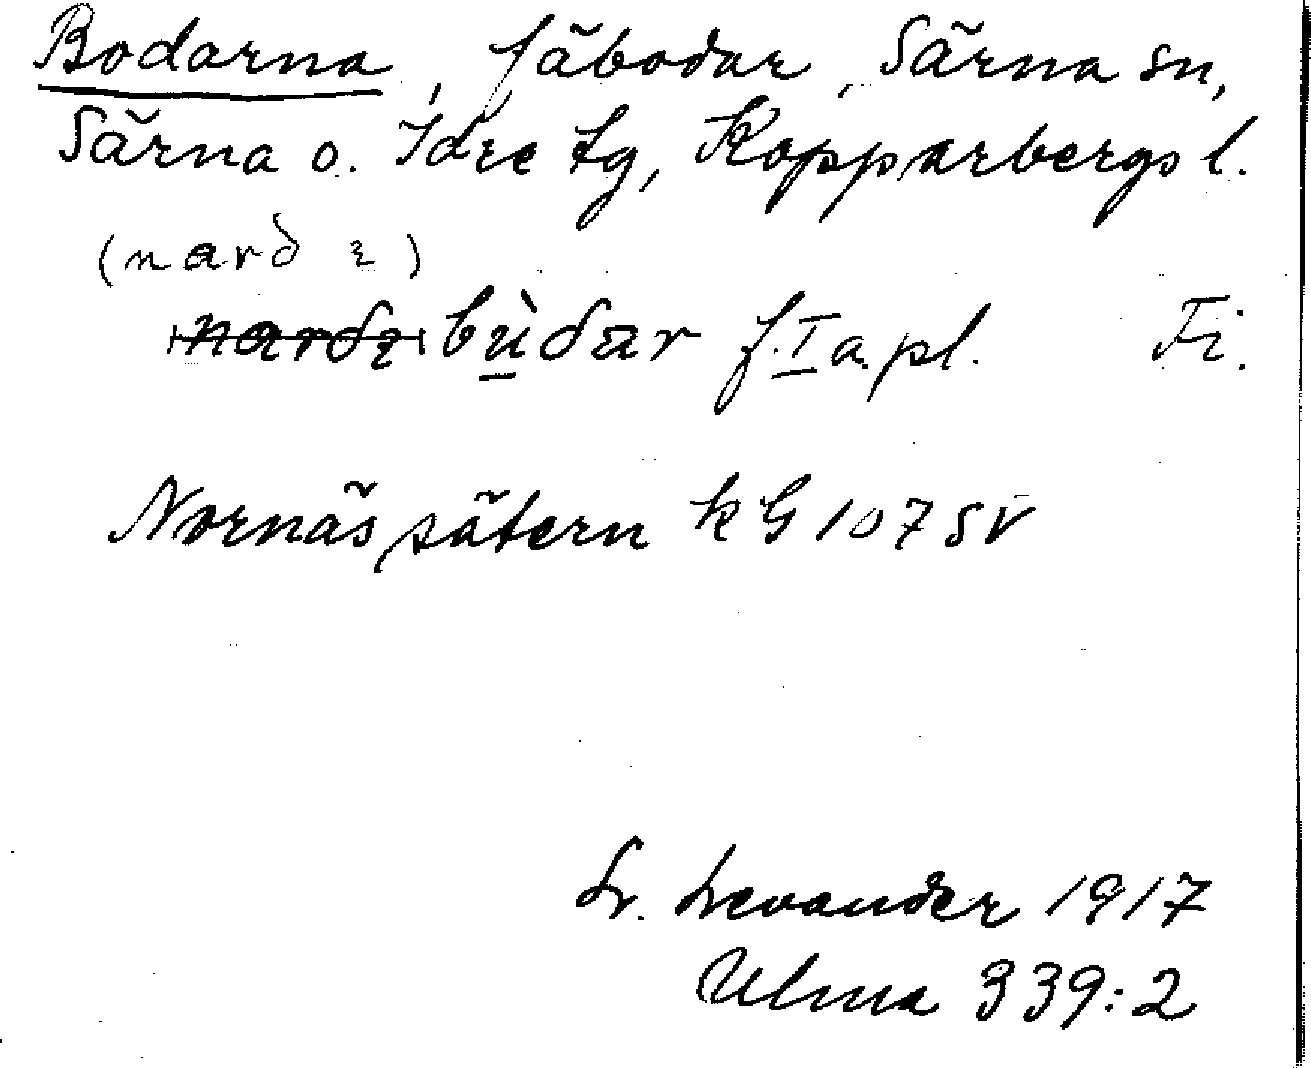 Bodarna, fäbodar, Särna sn,
Särna o. Idre tg, Kopparbergs l.
(nard )
bùdar f. I a. pl. Fi.
Nornässätern k G 107 SV
L. Levander 1917
Ulma 339:2